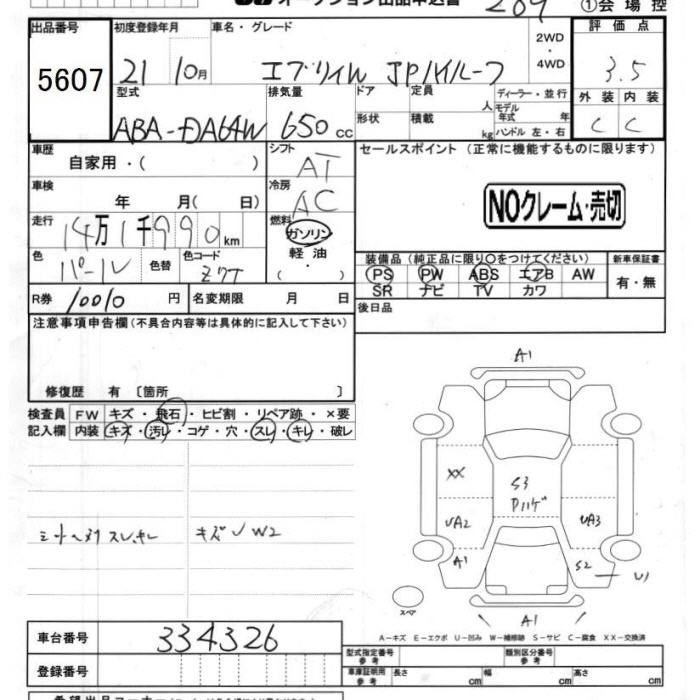 オークション出品申込書
209
①会場控
出品番号
5607
初度登録年月
21 10月
車名・グレード
エブリィW JPハイルーフ
2WD
・
4WD
評価点
3.5
型式
ABA-DA64W
排気量
650cc
ドア
定員
人
形状
積載
kg
ディーラー・並行
モデル年式 年
ハンドル 左・右
外装 内装
C C
車歴
自家用・( )
シフト
AT
車検
年 月( 日)
冷房
AC
走行
14万1千990km
燃料
ガソリン
軽油
・( )
色
パール
色替
色コード
Z7T
R券
10010円
名変期限 月 日
セールスポイント (正常に機能するものに限ります)
NOクレーム・売切
装備品(純正品に限り○をつけてください)
PS PW ABS エアB AW
SR ナビ TV カワ
新車保証書
有・無
後日品
注意事項申告欄(不具合内容等は具体的に記入して下さい)
修復歴 有〔箇所 〕
検査員記入欄
FW キズ・飛石・ヒビ割・リペア跡・×要
内装 キズ・汚レ・コゲ・穴・スレ・キレ・破レ
スレ、キレ
キズ W2
A1
XX
S3
Pハゲ
UA2
UA3
A1
S2
U1
スペア
A1
A-キズ E-エクボ U-凹み W-補修跡 S-サビ C-腐食 XX-交換済
車台番号
334326
登録番号
型式指定番号
参考
類別区分番号
参考
車庫証明用
参考
長さ cm
幅 cm
高さ cm
希望出品コーナー